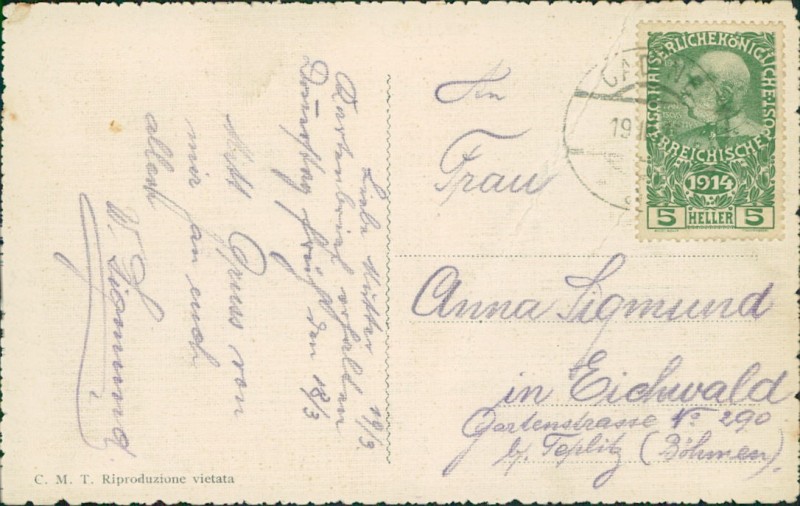 Liebe Mutter 19/3
Kartenbrief erhalten
Dienstag früh den 18/3
Mitt Gruss von
mir an euch
allen
W. Sigmund
An
Frau
Anna Sigmund
in Eichwald
Gartenstrasse No 290
b/ Teplitz (Böhmen)
KAISERLICHEKÖNIGLICHE
ÖSTERREICHISCHE
1914
5 HELLER 5
19
C. M. T. Riproduzione vietata